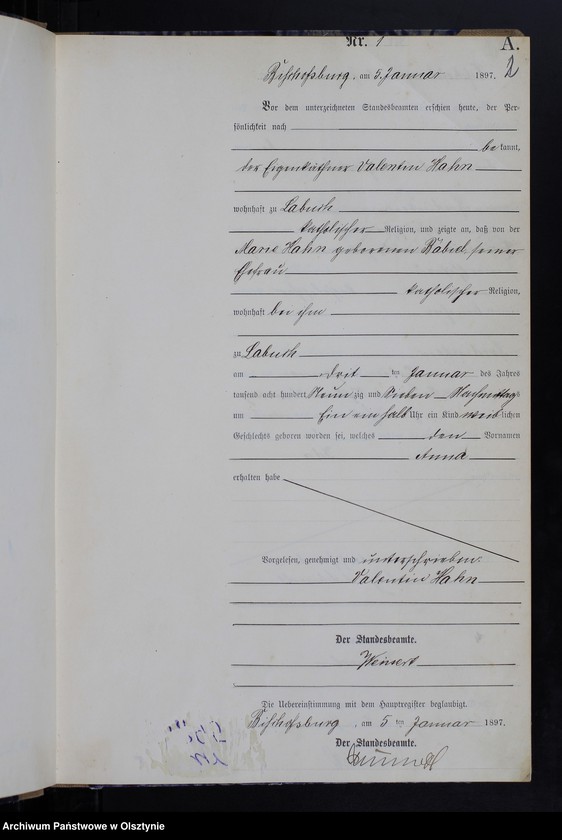 Nr. 1
A.
2
Bischofsburg, am 5. Januar 1897.
Vor dem unterzeichneten Standesbeamten erschien heute, der Per-
sönlichkeit nach
be kannt,
der Eigenkäthner Valentin Hahn
wohnhaft zu Labuch
katholischer Religion, und zeigte an, daß von der
Marie Hahn geborenen seiner
Ehefrau
katholischer Religion,
wohnhaft bei ihm
zu Labuch
am drit ten Januar des Jahres
tausend acht hundert Neun zig und Sieben Nachmittags
um Ein einhalb Uhr ein Kind weib lichen
Geschlechts geboren worden sei, welches den Vornamen
Anna
erhalten habe
Vorgelesen, genehmigt und unterschrieben.
Valentin Hahn
Der Standesbeamte.
Weinert
Die Uebereinstimmung mit dem Hauptregister beglaubigt.
Bischofsburg, am 5 ten Januar 1897.
Der Standesbeamte.
Archiwum Państwowe w Olsztynie